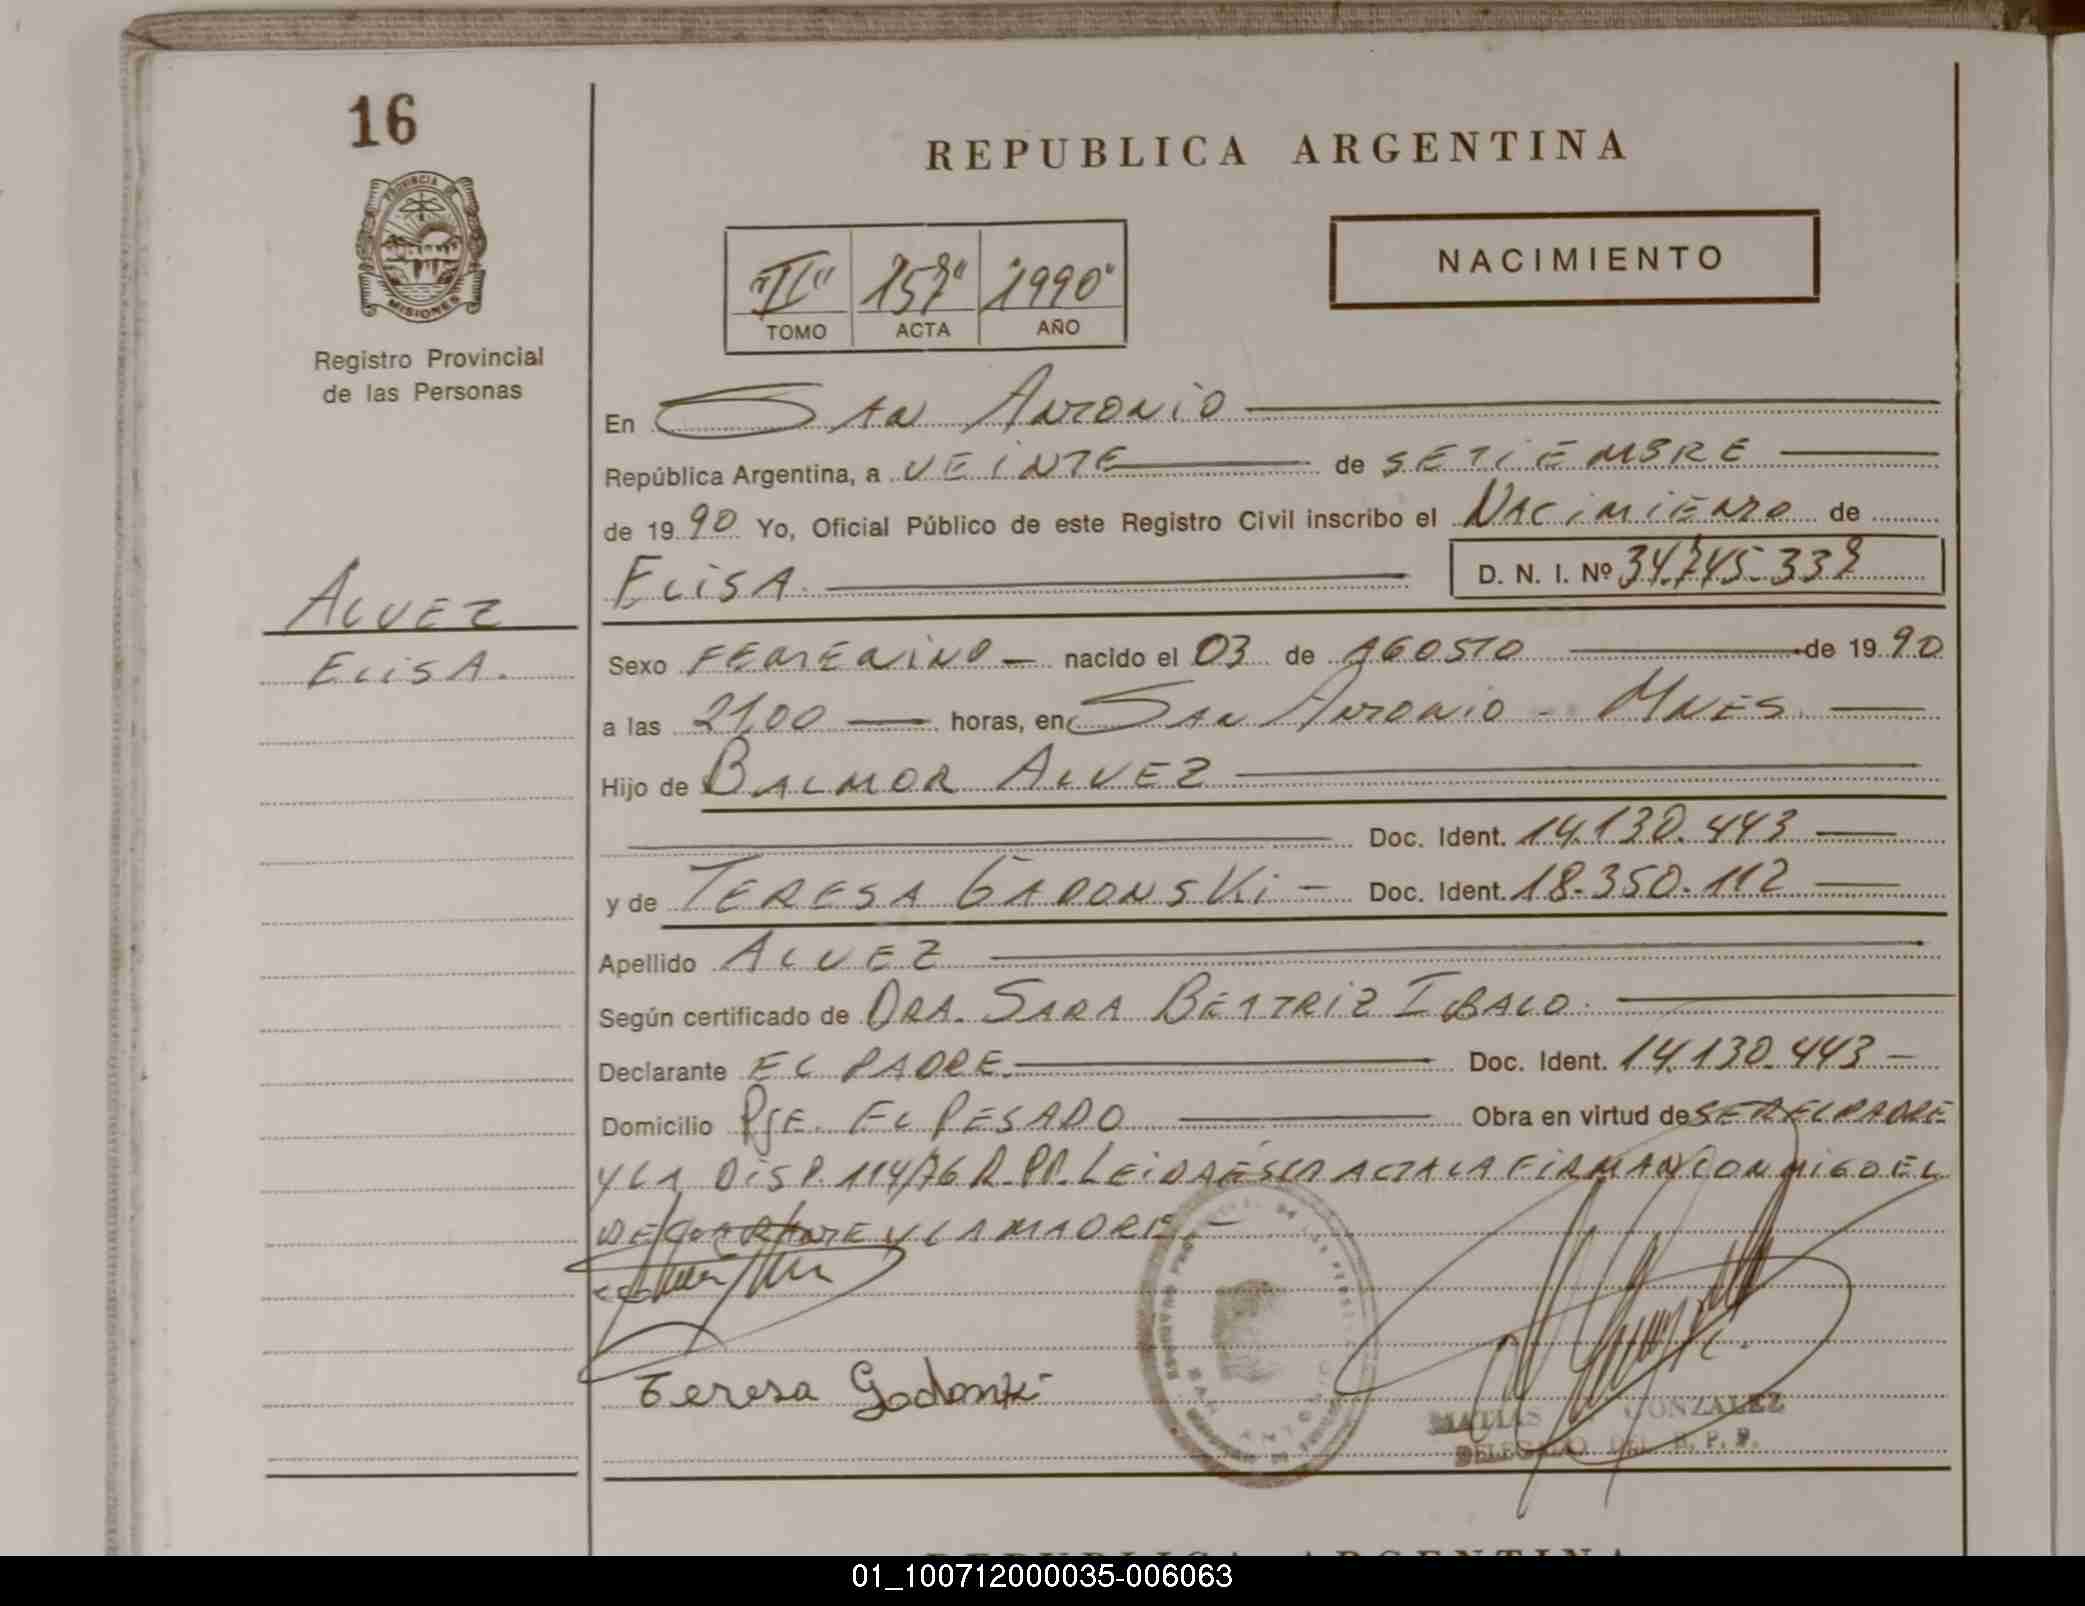 16
PROVINCIA DE
MISIONES
Registro Provincial
de las Personas
REPUBLICA ARGENTINA
NACIMIENTO
"II" 157" 1990"
TOMO ACTA AÑO
En SAN ANTONIO
República Argentina, a VEINTE de SETIEMBRE
de 1990 Yo, Oficial Público de este Registro Civil inscribo el NACIMIENTO de
ELISA. D. N. I. Nº 34.745.337
ALVEZ
ELISA.
Sexo FEMENINO - nacido el 03 de AGOSTO de 1990
a las 21,00 horas, en SAN ANTONIO - MNES.
Hijo de BALMOR ALVEZ
Doc. Ident. 14.130.443
y de TERESA GADONSKI - Doc. Ident. 18.350.112
Apellido ALVEZ
Según certificado de DRA. SARA BEATRIZ
Declarante EL PADRE. Doc. Ident. 14.130.443 -
Domicilio PJE. EL PESADO Obra en virtud de SER EL PADRE
Y LA DISP. 114/76 R.PP. LEIDA ESTA ACTA LA FIRMAN CONMIGO EL
DECLARANTE Y LA MADRE. -
Teresa Godonski
MATIAS GONZALEZ
DELEGADO DEL R. P. P.
REPUBLICA ARGENTINA
01_100712000035-006063